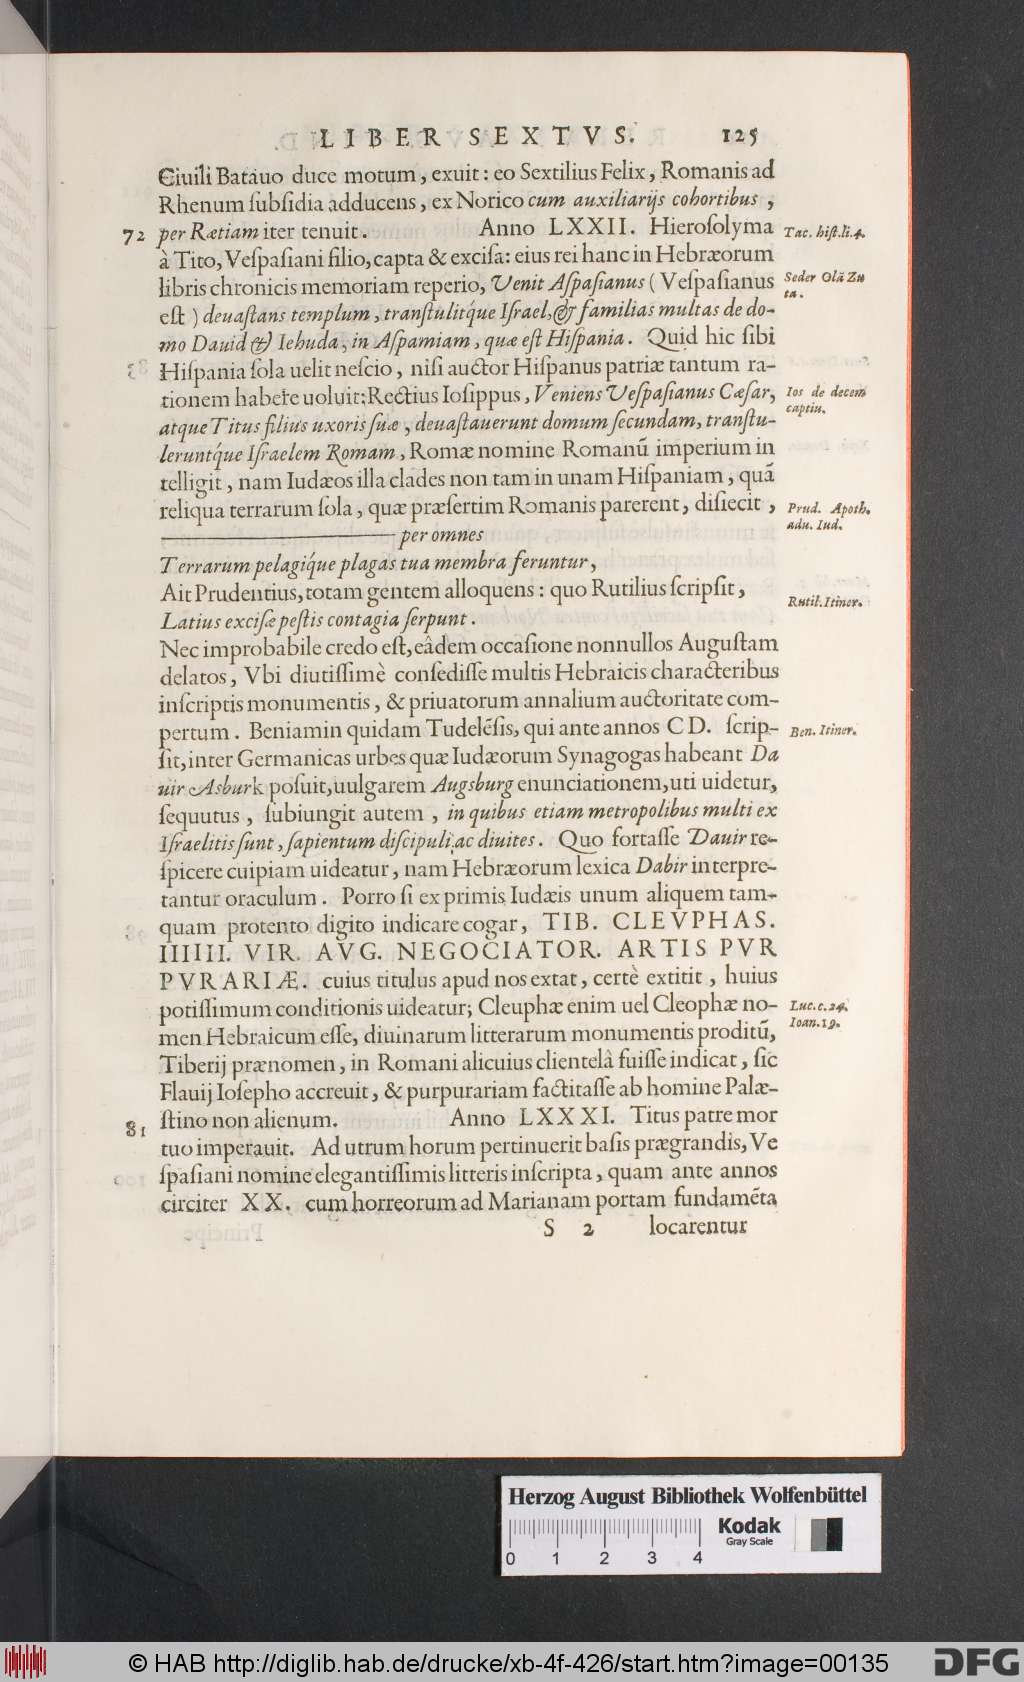 LIBER SEXTVS. 125
Ciuili Batauo duce motum, exuit: eo Sextilius Felix, Romanis ad
Rhenum ſubſidia adducens, ex Norico cum auxiliarijs cohortibus,
72 per Rætiam iter tenuit. Anno LXXII. Hieroſolyma Tac. hiſt. li. 4.
à Tito, Veſpaſiani filio, capta & exciſa: eius rei hanc in Hebræorum
libris chronicis memoriam reperio, Venit Aſpaſianus (Veſpaſianus Seder Olã Zu
ta.
eſt) deuaſtans templum, tranſtulitq́ue Iſrael, & familias multas de do-
mo Dauid & Iehuda, in Aſpamiam, quæ eſt Hiſpania. Quid hic ſibi
Hiſpania ſola uelit neſcio, niſi auctor Hiſpanus patriæ tantum ra-
tionem habere uoluit: Rectius Ioſippus, Veniens Veſpaſianus Cæſar, Ios de decem
captiu.
atque Titus filius uxoris ſuæ, deuaſtauerunt domum ſecundam, tranſtu-
leruntq́ue Iſraelem Romam, Romæ nomine Romanũ imperium in
telligit, nam Iudæos illa clades non tam in unam Hiſpaniam, quã
reliqua terrarum ſola, quæ præſertim Romanis parerent, diſiecit, Prud. Apoth.
adu. Iud.
per omnes
Terrarum pelagiq́ue plagas tua membra feruntur,
Ait Prudentius, totam gentem alloquens: quo Rutilius ſcripſit, Rutil. Itiner.
Latius exciſæ peſtis contagia ſerpunt.
Nec improbabile credo eſt, eâdem occaſione nonnullos Auguſtam
delatos, Vbi diutiſſimè conſediſſe multis Hebraicis characteribus
inſcriptis monumentis, & priuatorum annalium auctoritate com-
pertum. Beniamin quidam Tudelẽſis, qui ante annos CD. ſcrip- Ben. Itiner.
ſit, inter Germanicas urbes quæ Iudæorum Synagogas habeant Da
uir Asburk poſuit, uulgarem Augsburg enunciationem, uti uidetur,
ſequutus, ſubiungit autem, in quibus etiam metropolibus multi ex
Iſraelitis ſunt, ſapientum diſcipuli, ac diuites. Quo fortaſſe Dauir re-
ſpicere cuipiam uideatur, nam Hebræorum lexica Dabir interpre-
tantur oraculum. Porro ſi ex primis Iudæis unum aliquem tam-
quam protento digito indicare cogar, TIB. CLEVPHAS.
IIIIII. VIR. AVG. NEGOCIATOR. ARTIS PVR
PVRARIÆ. cuius titulus apud nos extat, certè extitit, huius
potiſſimum conditionis uideatur; Cleuphæ enim uel Cleophæ no- Luc. c. 24.
Ioan. 19.
men Hebraicum eſſe, diuinarum litterarum monumentis proditũ,
Tiberij prænomen, in Romani alicuius clientelâ fuiſſe indicat, ſic
Flauij Ioſepho accreuit, & purpurariam factitaſſe ab homine Palæ-
81 ſtino non alienum. Anno LXXXI. Titus patre mor
tuo imperauit. Ad utrum horum pertinuerit baſis prægrandis, Ve
ſpaſiani nomine elegantiſſimis litteris inſcripta, quam ante annos
circiter XX. cum horreorum ad Marianam portam fundamẽta
S 2 locarentur
Herzog August Bibliothek Wolfenbüttel
Kodak
Gray Scale
0 1 2 3 4
© HAB http://diglib.hab.de/drucke/xb-4f-426/start.htm?image=00135
DFG